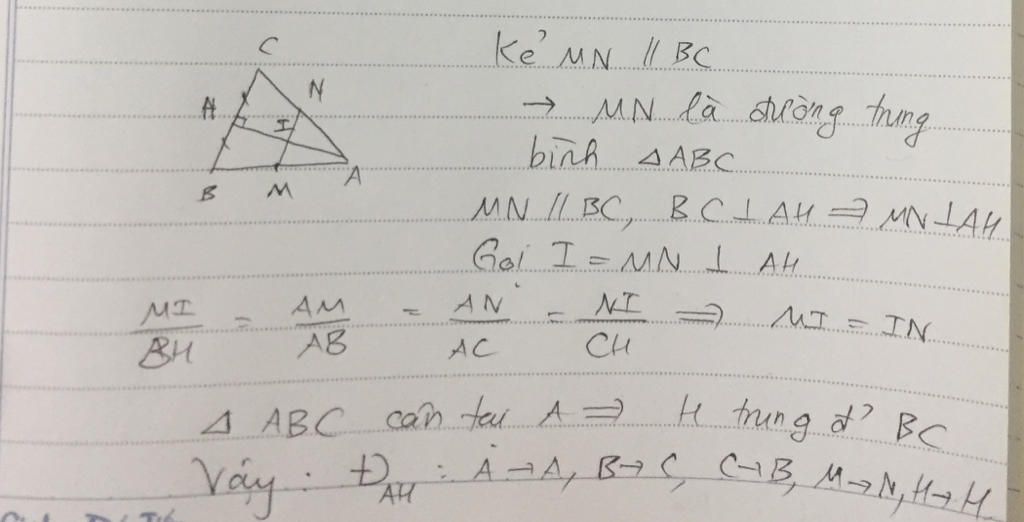 C
N
H
I
B
M
A
Kẻ MN // BC
→ MN là đường trung
bình △ABC
MN // BC, BC ⊥ AH ⇒ MN ⊥ AH
Gọi I = MN ⊥ AH
MI/BH = AM/AB = AN/AC = NI/CH ⇒ MI = IN
△ ABC cân tại A ⇒ H trung đ' BC
Vậy : Đ_AH : A → A, B → C, C → B, M → N, H → H